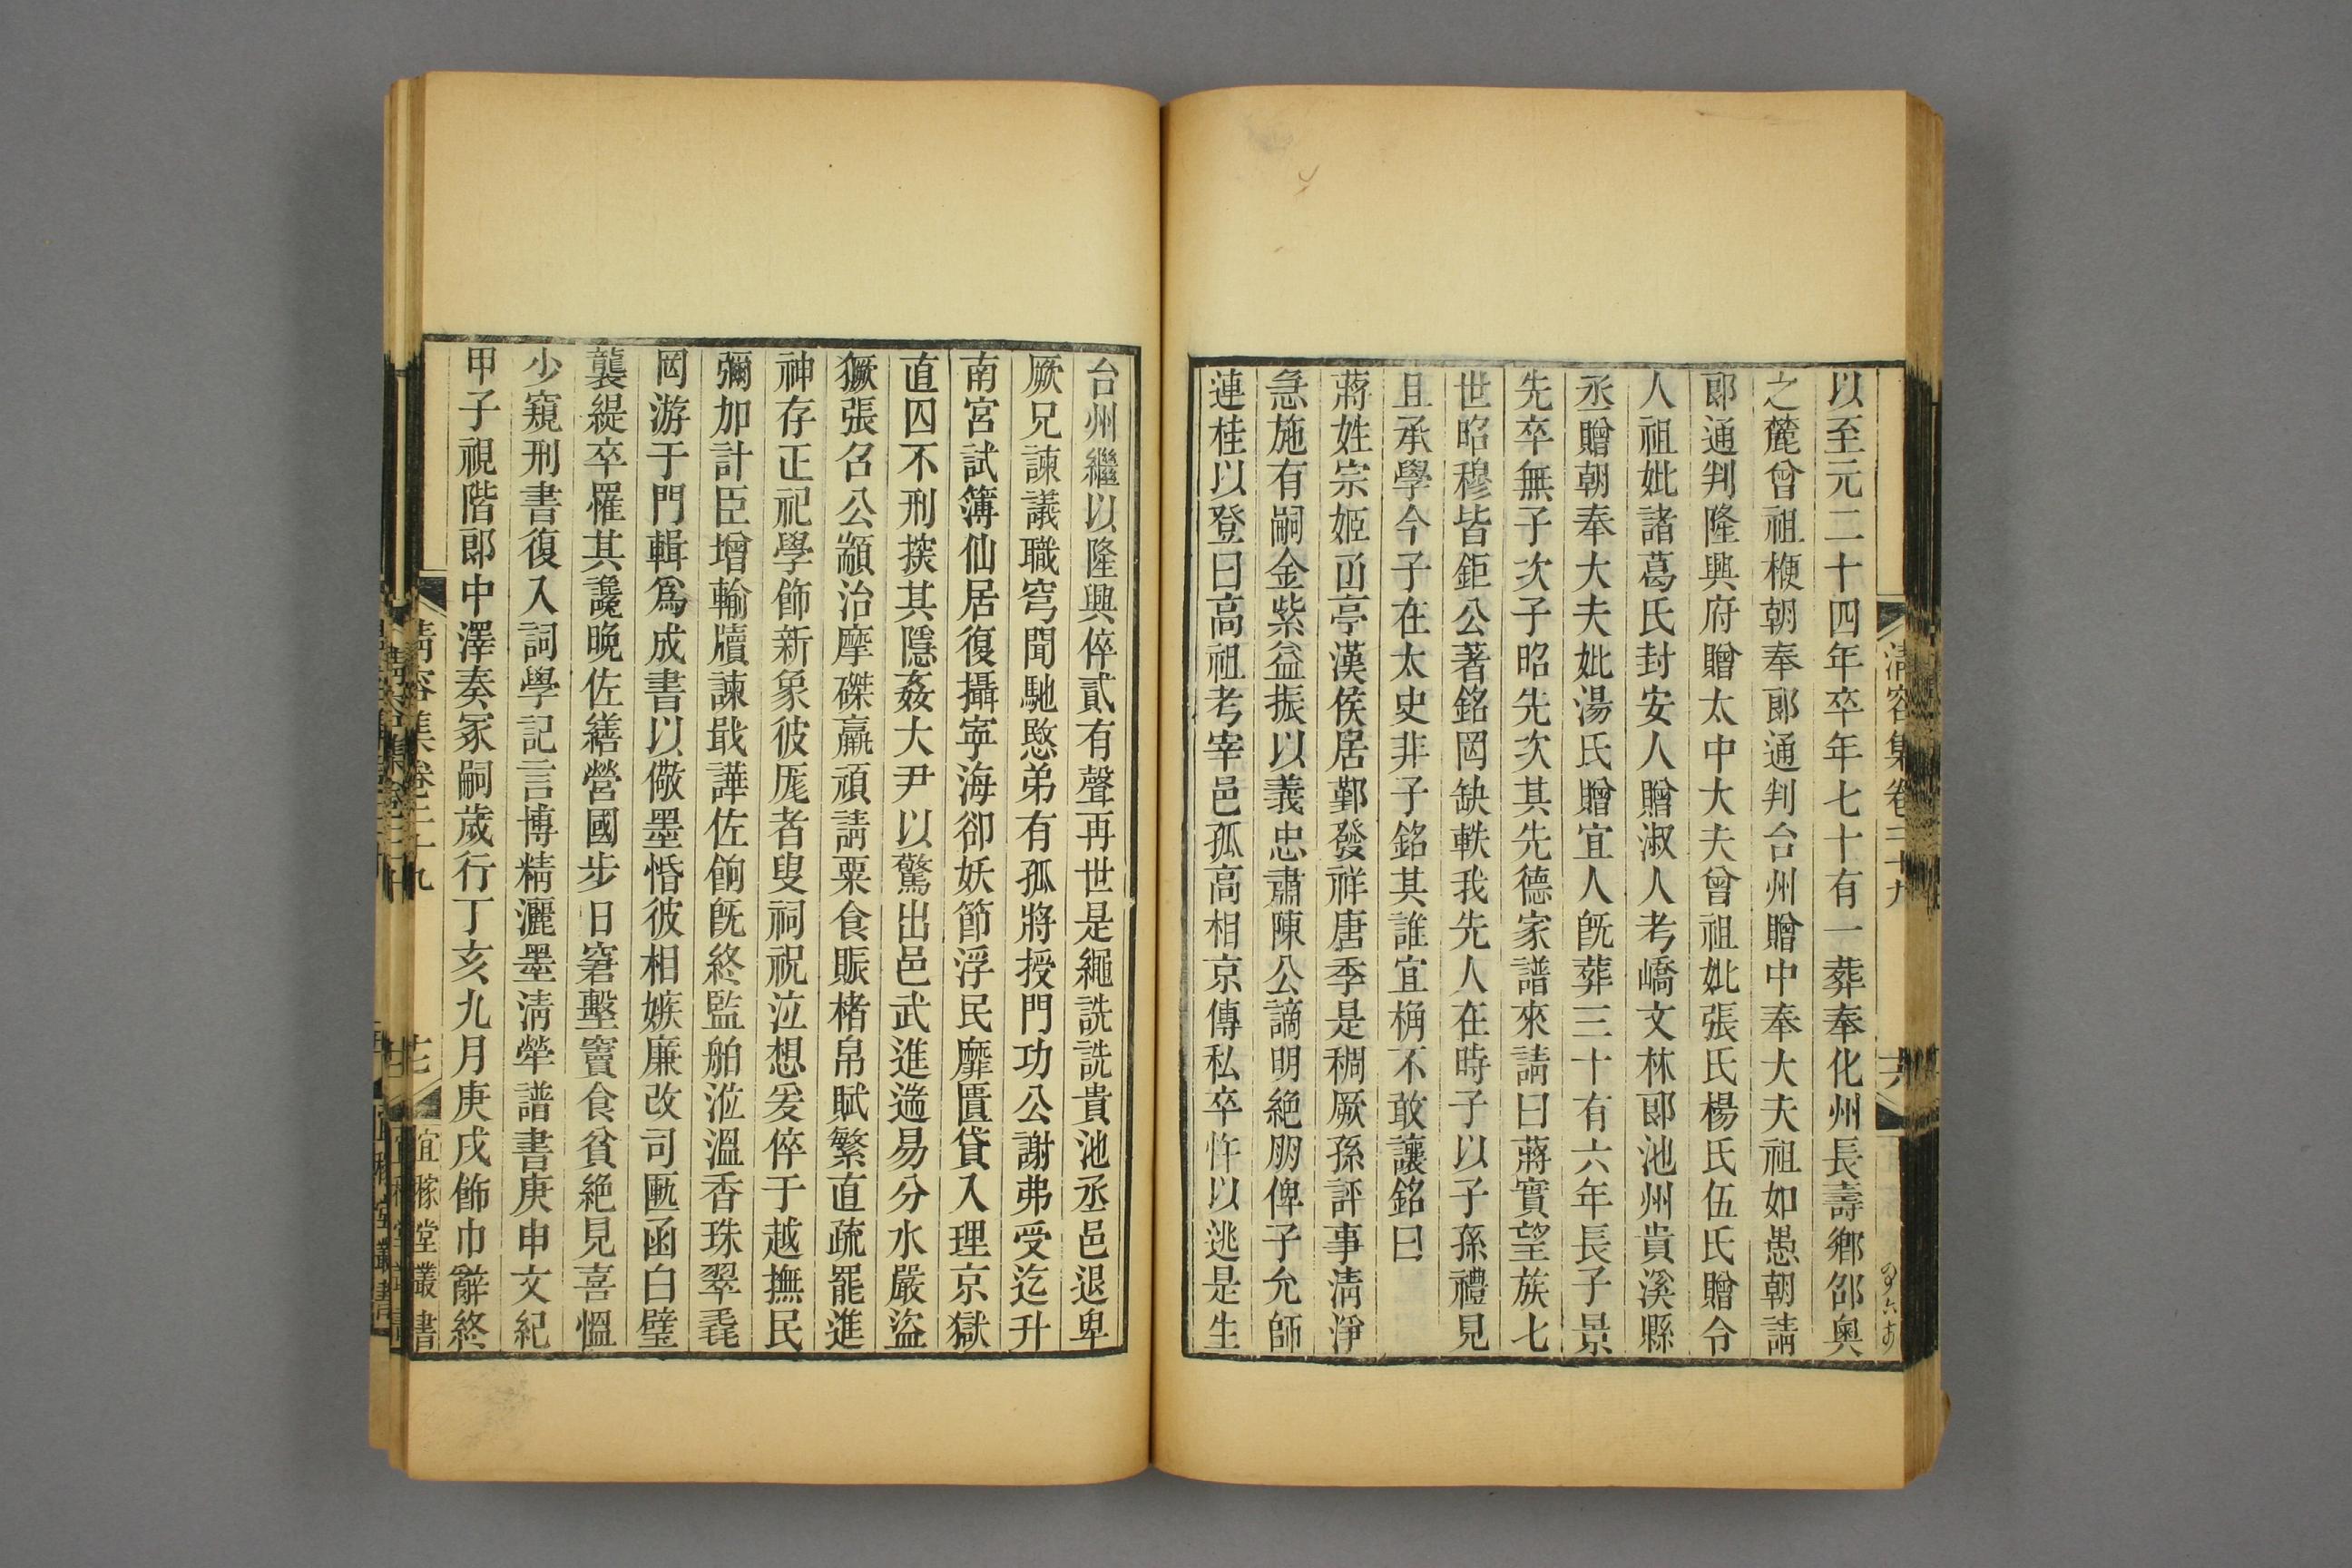 清容集卷二十九
以至元二十四年卒年七十有一葬奉化州長壽鄉邵奧
之麓曾祖楩朝奉郞通判台州贈中奉大夫祖如愚朝請
郞通判隆興府贈太中大夫曾祖妣張氏楊氏伍氏贈令
人祖妣諸葛氏封安人贈淑人考嶠文林郞池州貴溪縣
丞贈朝奉大夫妣湯氏贈宜人旣葬三十有六年長子景
先卒無子次子昭先次其先德家譜來請曰蔣實望族七
世昭穆皆鉅公著銘罔缺軼我先人在時子以子孫禮見
且承學今子在太史非子銘其誰宜稱不敢讓銘曰
蔣姓宗姬亭漢侯居鄞發祥唐季是稠厥孫評事淸淨
急施有嗣金紫益振以義忠肅陳公謫明絕朋俾子允師
連桂以登曰高祖考宰邑孤高相京傳私卒忤以逃是生
台州繼以隆興倅貳有聲再世是繩詵詵貴池丞邑退卑
厥兄諫議職穹聞馳愍弟有孤將授門功公謝弗受迄升
南宮試簿仙居復攝寧海卻妖節浮民靡匱貸入理京獄
直囚不刑揬其隱姦大尹以驚出邑武進遄易分水嚴盜
獗張召公顓治摩磔羸頑請粟食賑楮帛賦繁直疏罷進
神存正祀學飾新象彼厖者叟祠祝泣想爰倅于越撫民
彌加計臣增輸牘諫戢譁佐餉旣終監舶涖溫香珠翠毳
罔游于門輯爲成書以儆墨惛彼相嫉廉改司匭函白璧
襲緹卒罹其讒晚佐繕營國步日窘墼竇食貧絕見喜慍
少窺刑書復入詞學記言博精灑墨淸犖譜書庚申文紀
甲子視階郞中澤奏冢嗣歲行丁亥九月庚戌飾巾辭終
淸容集卷二十九
宜稼堂叢書